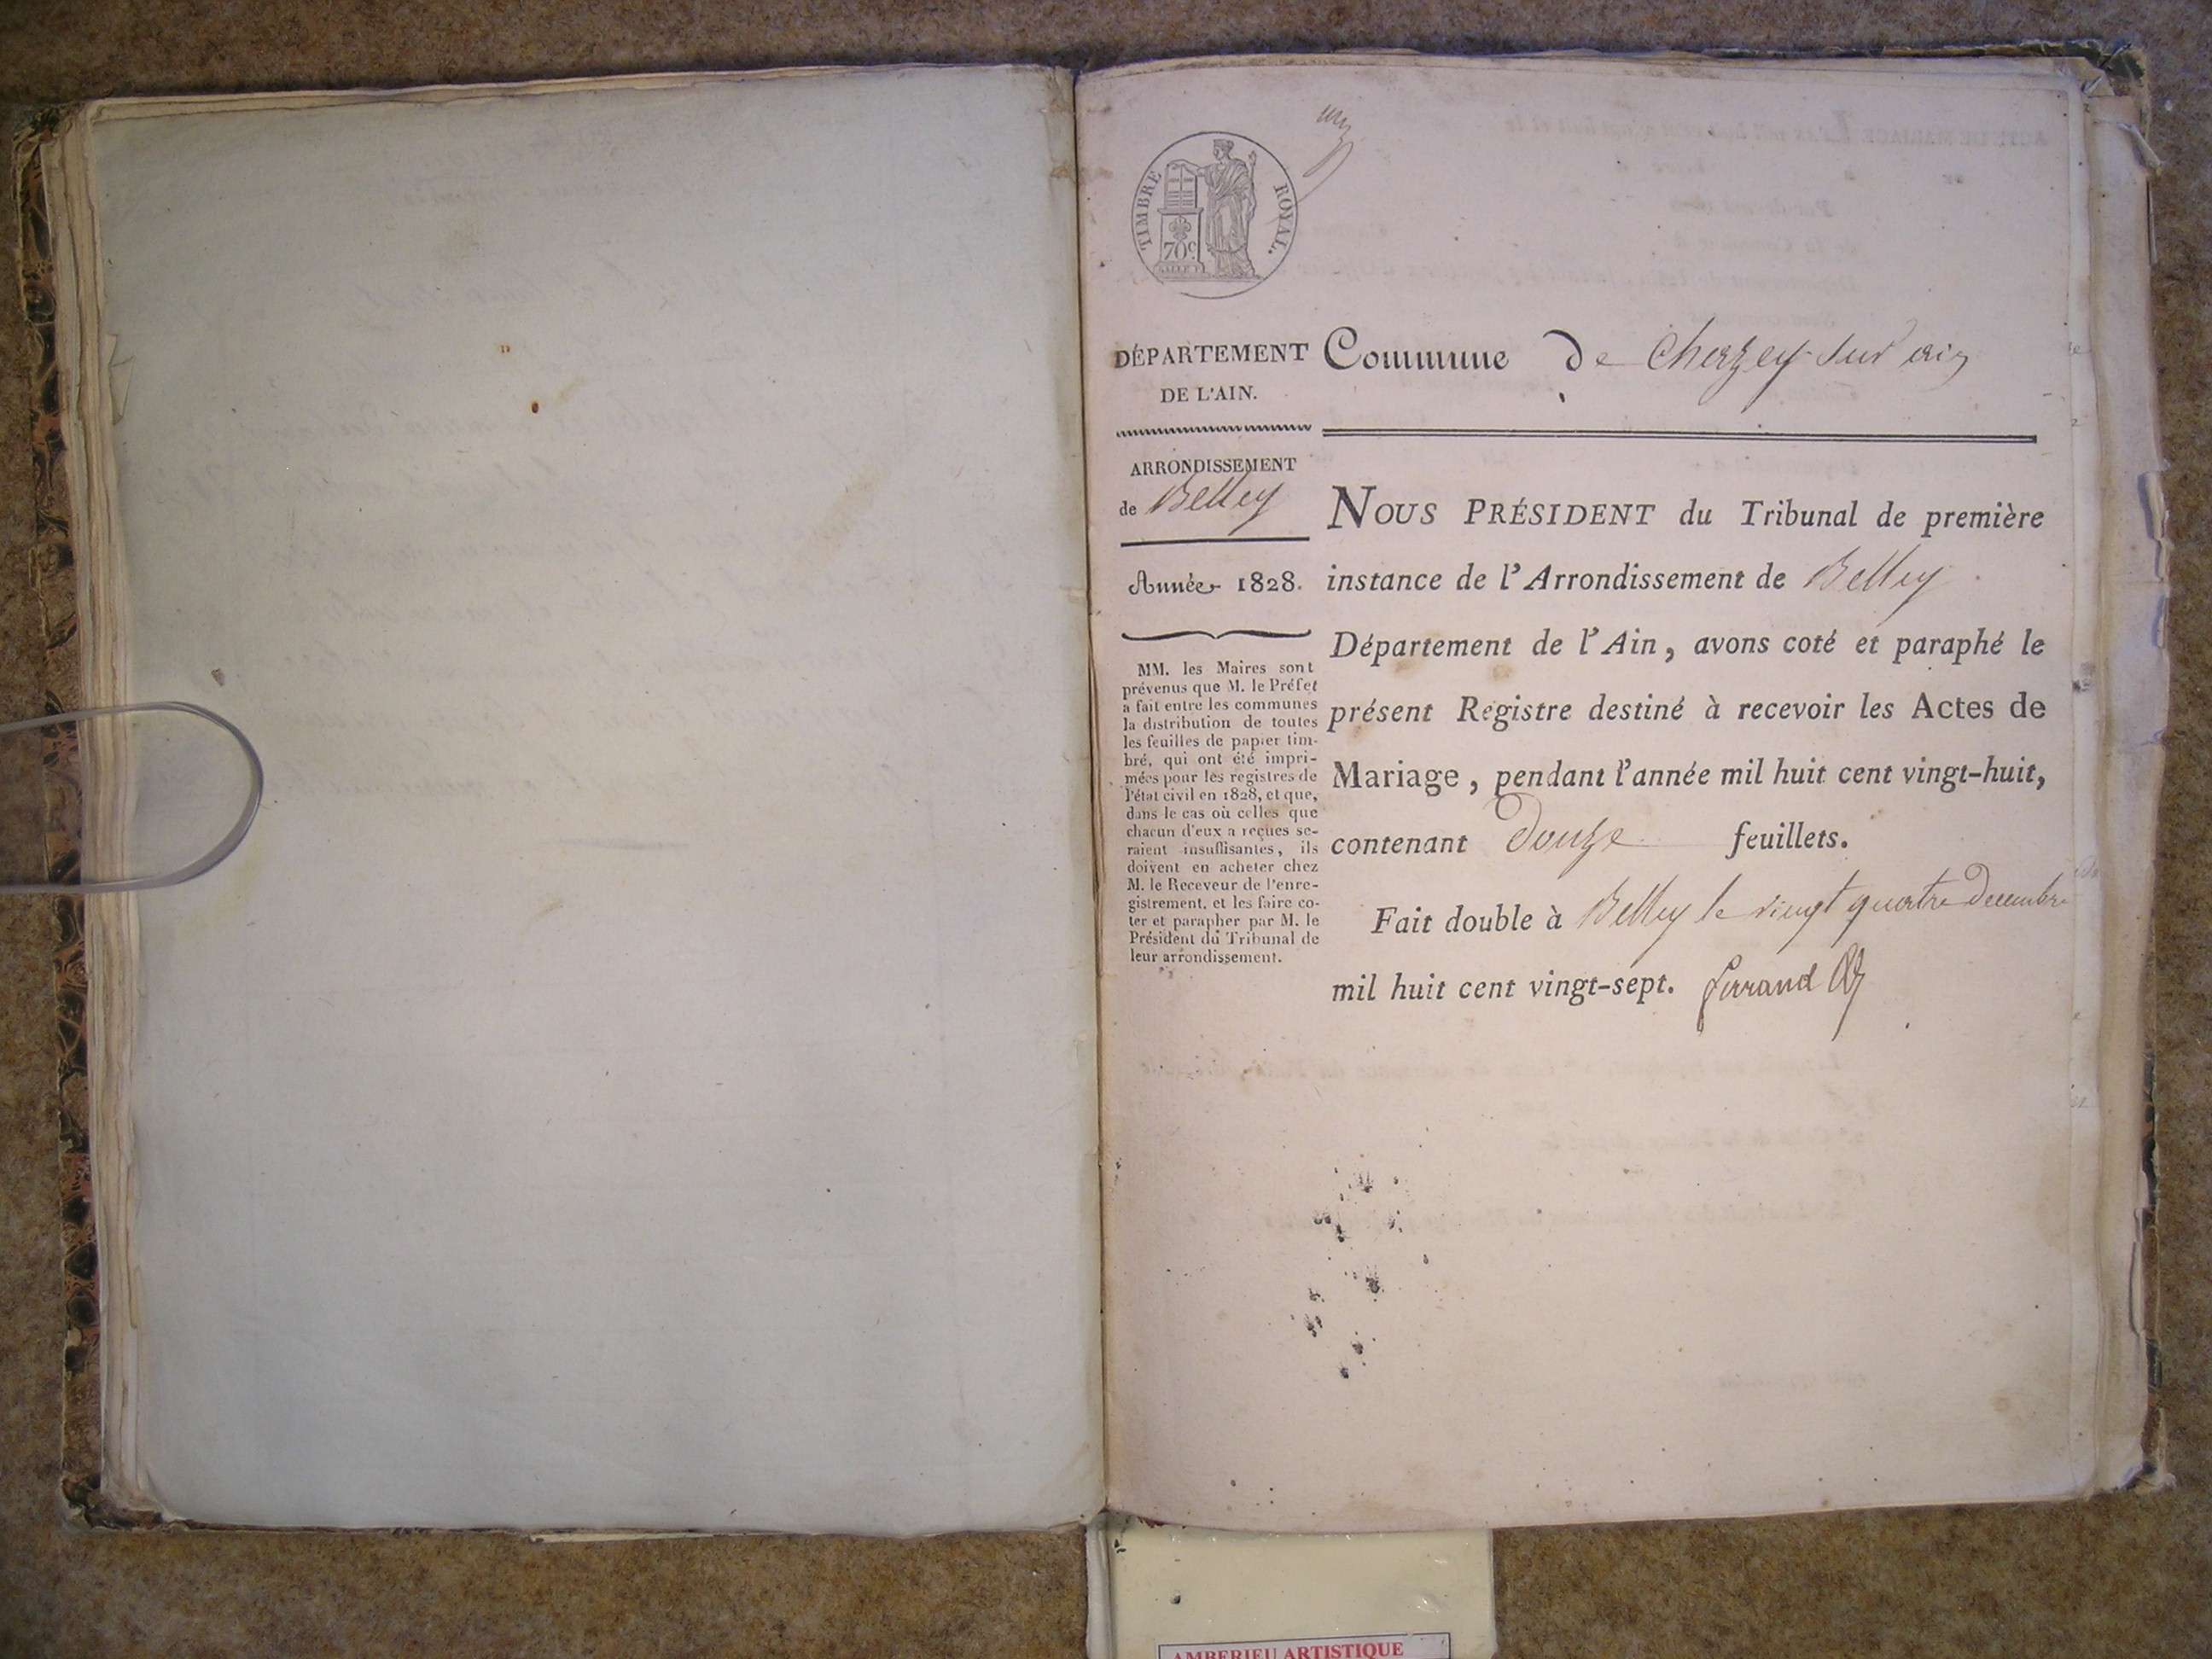 TIMBRE ROYAL.
70c
DÉPARTEMENT
DE L'AIN.
Commune de Chazey sur ain
ARRONDISSEMENT
de Belley
Année 1828.
MM. les Maires sont
prévenus que M. le Préfet
a fait entre les communes
la distribution de toutes
les feuilles de papier tim-
bré, qui ont été impri-
mées pour les registres de
l'état civil en 1828, et que,
dans le cas où celles que
chacun d'eux a reçues se-
raient insuffisantes, ils
doivent en acheter chez
M. le Receveur de l'enre-
gistrement, et les faire co-
ter et parapher par M. le
Président du Tribunal de
leur arrondissement.
NOUS PRÉSIDENT du Tribunal de première
instance de l'Arrondissement de Belley
Département de l'Ain, avons coté et paraphé le
présent Registre destiné à recevoir les Actes de
Mariage, pendant l'année mil huit cent vingt-huit,
contenant Douze feuillets.
Fait double à Belley le vingt quatre Decembre
mil huit cent vingt-sept. ferrand
AMBERIEU ARTISTIQUE